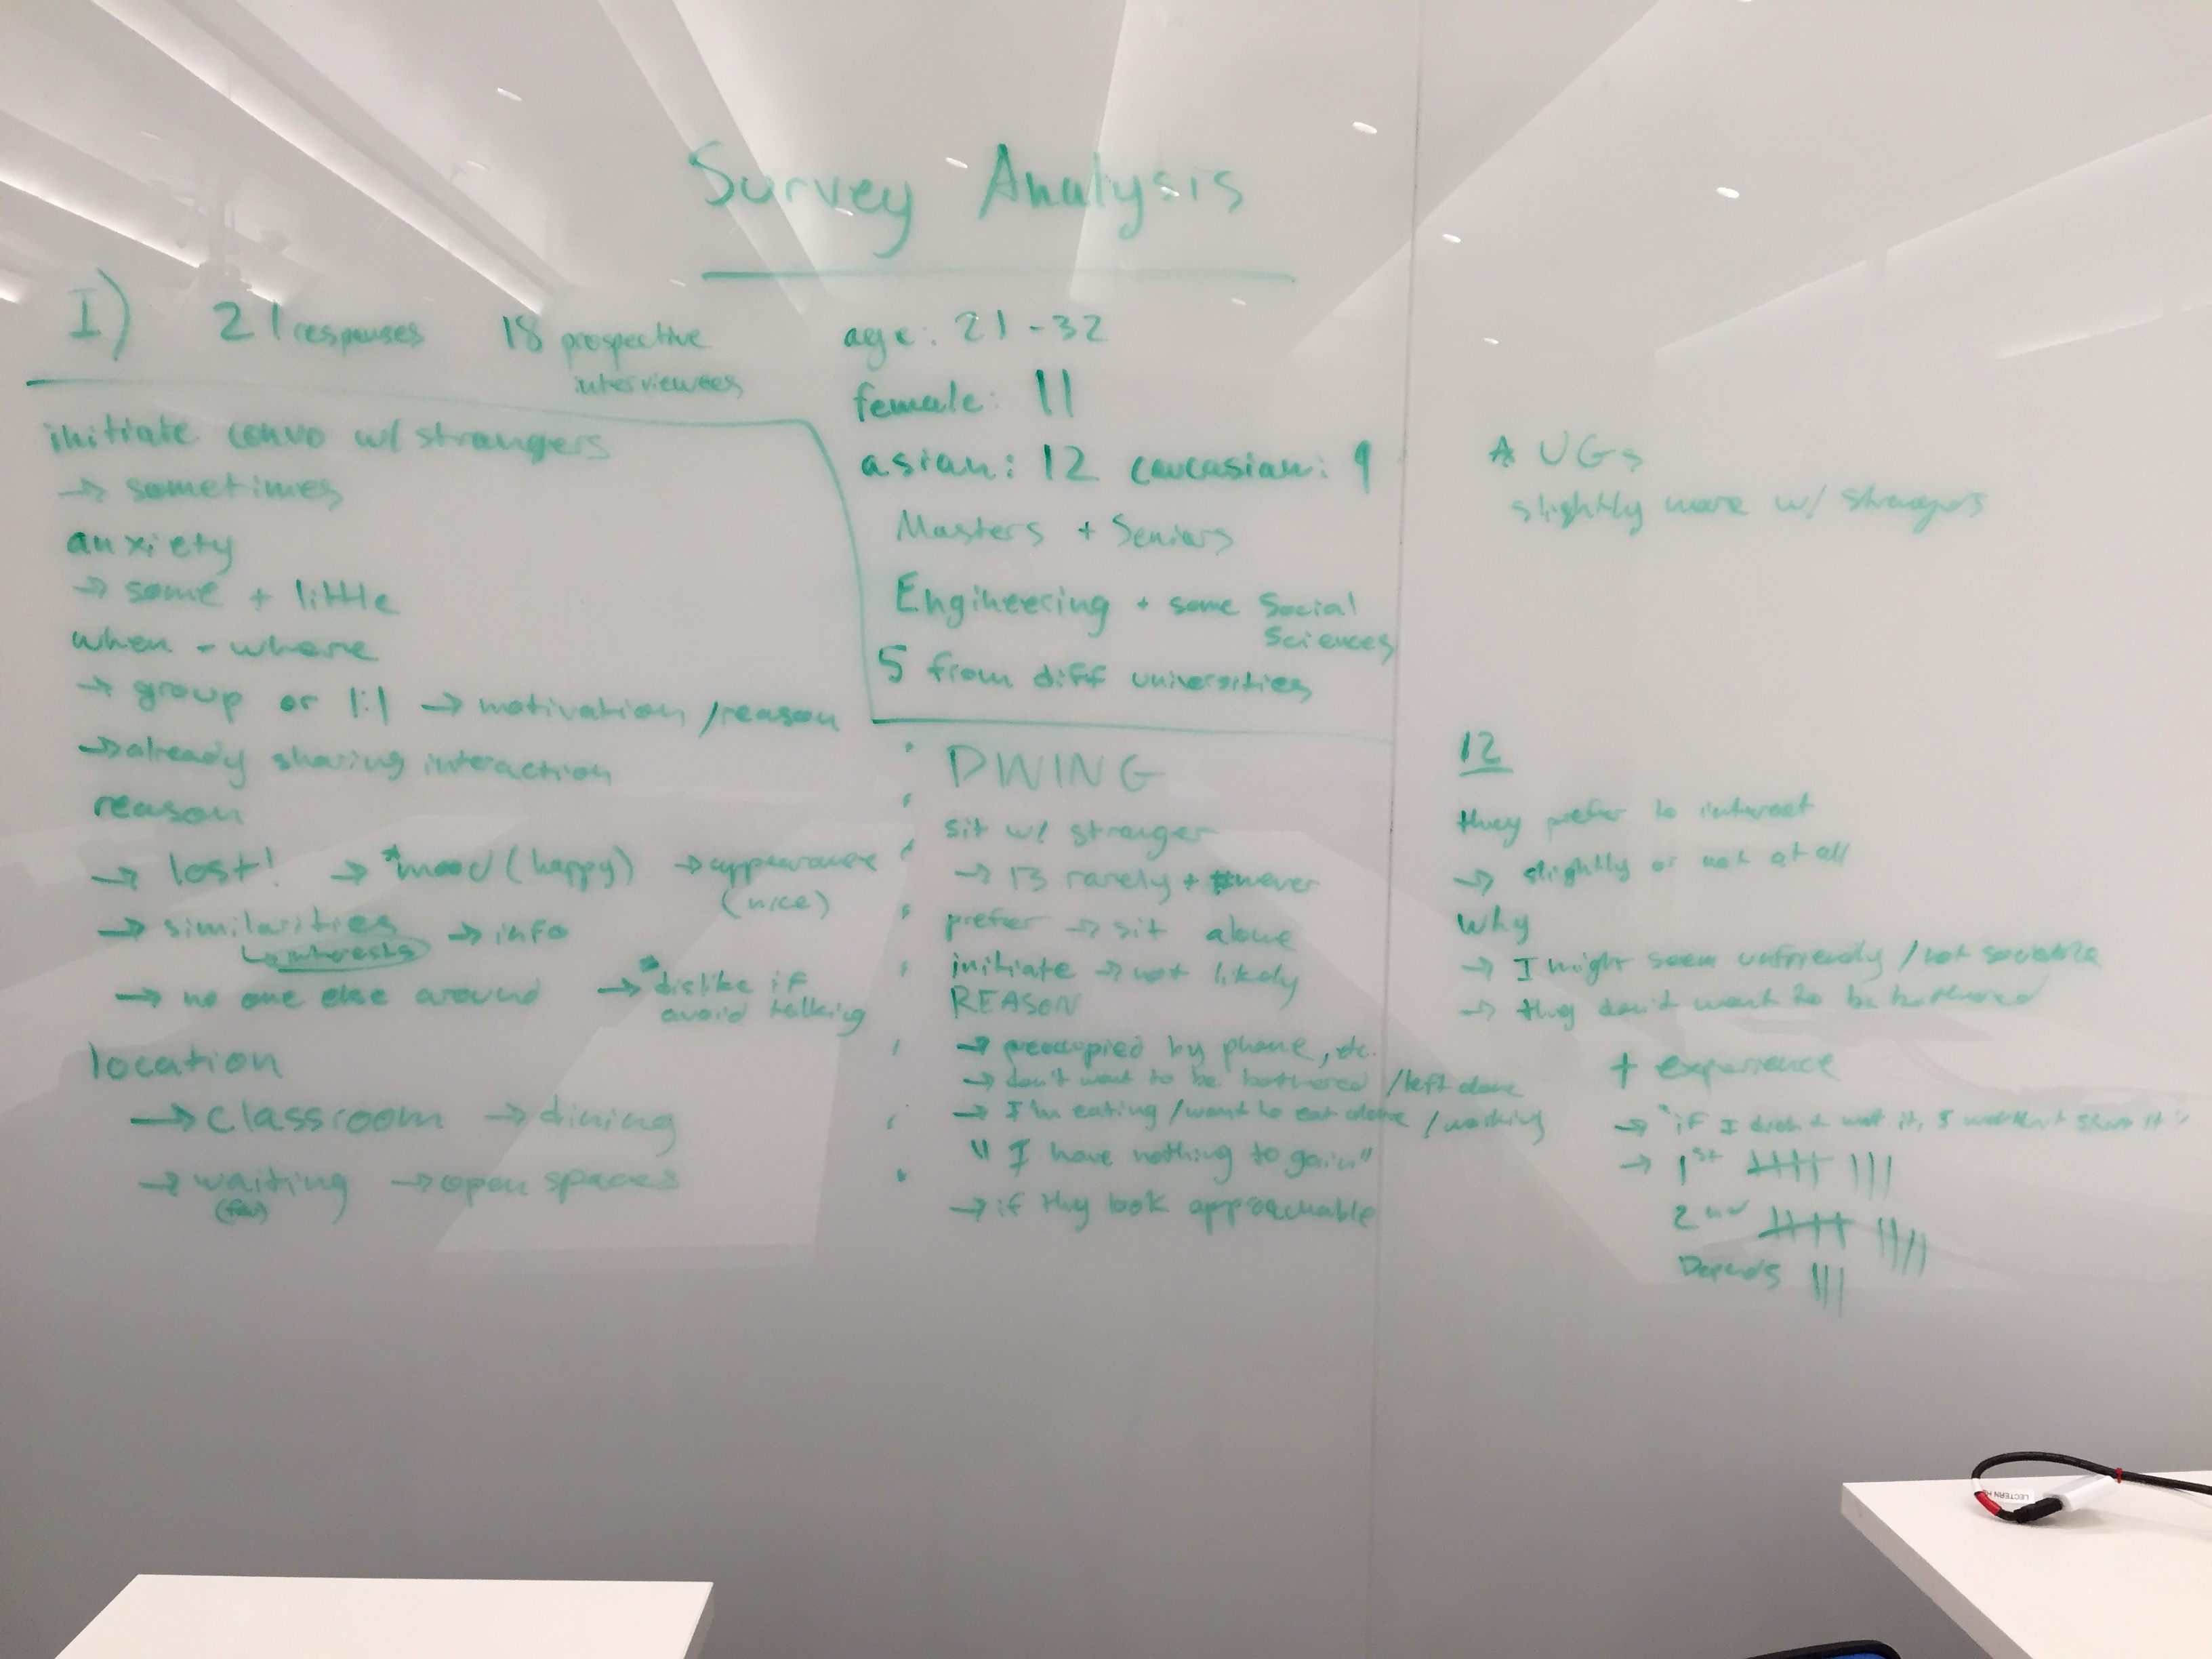 Survey Analysis
I) 21 responses 18 prospective
interviewees
initiate convo w/ strangers
→ sometimes
anxiety
→ some + little
when - where
→ group or 1:1 → motivation/reason
→ already sharing interaction
reason
→ lost! → *mood (happy) → appearance
(nice)
→ similarities → info
↳ interests
→ no one else around → *dislike if
avoid talking
location
→ classroom → dining
→ waiting → open spaces
(few)
age: 21-32
female: 11
asian: 12 caucasian: 9
Masters + Seniors
Engineering + some Social
Sciences
5 from diff universities
DINING
sit w/ stranger
→ 13 rarely + never
prefer → sit alone
initiate → not likely
REASON
→ preoccupied by phone, etc.
→ don't want to be bothered /left alone
→ I'm eating /want to eat alone /working
"I have nothing to gain"
→ if they look approachable
* UGs
slightly more w/ strangers
12
they prefer to interact
→ slightly or not at all
why
→ I might seem unfriendly / not sociable
→ they don't want to be bothered
+ experience
→ "if I didn't it, I wouldn't it"
→ 1st 卌 |||
2nd 卌 ||||
Depends |||